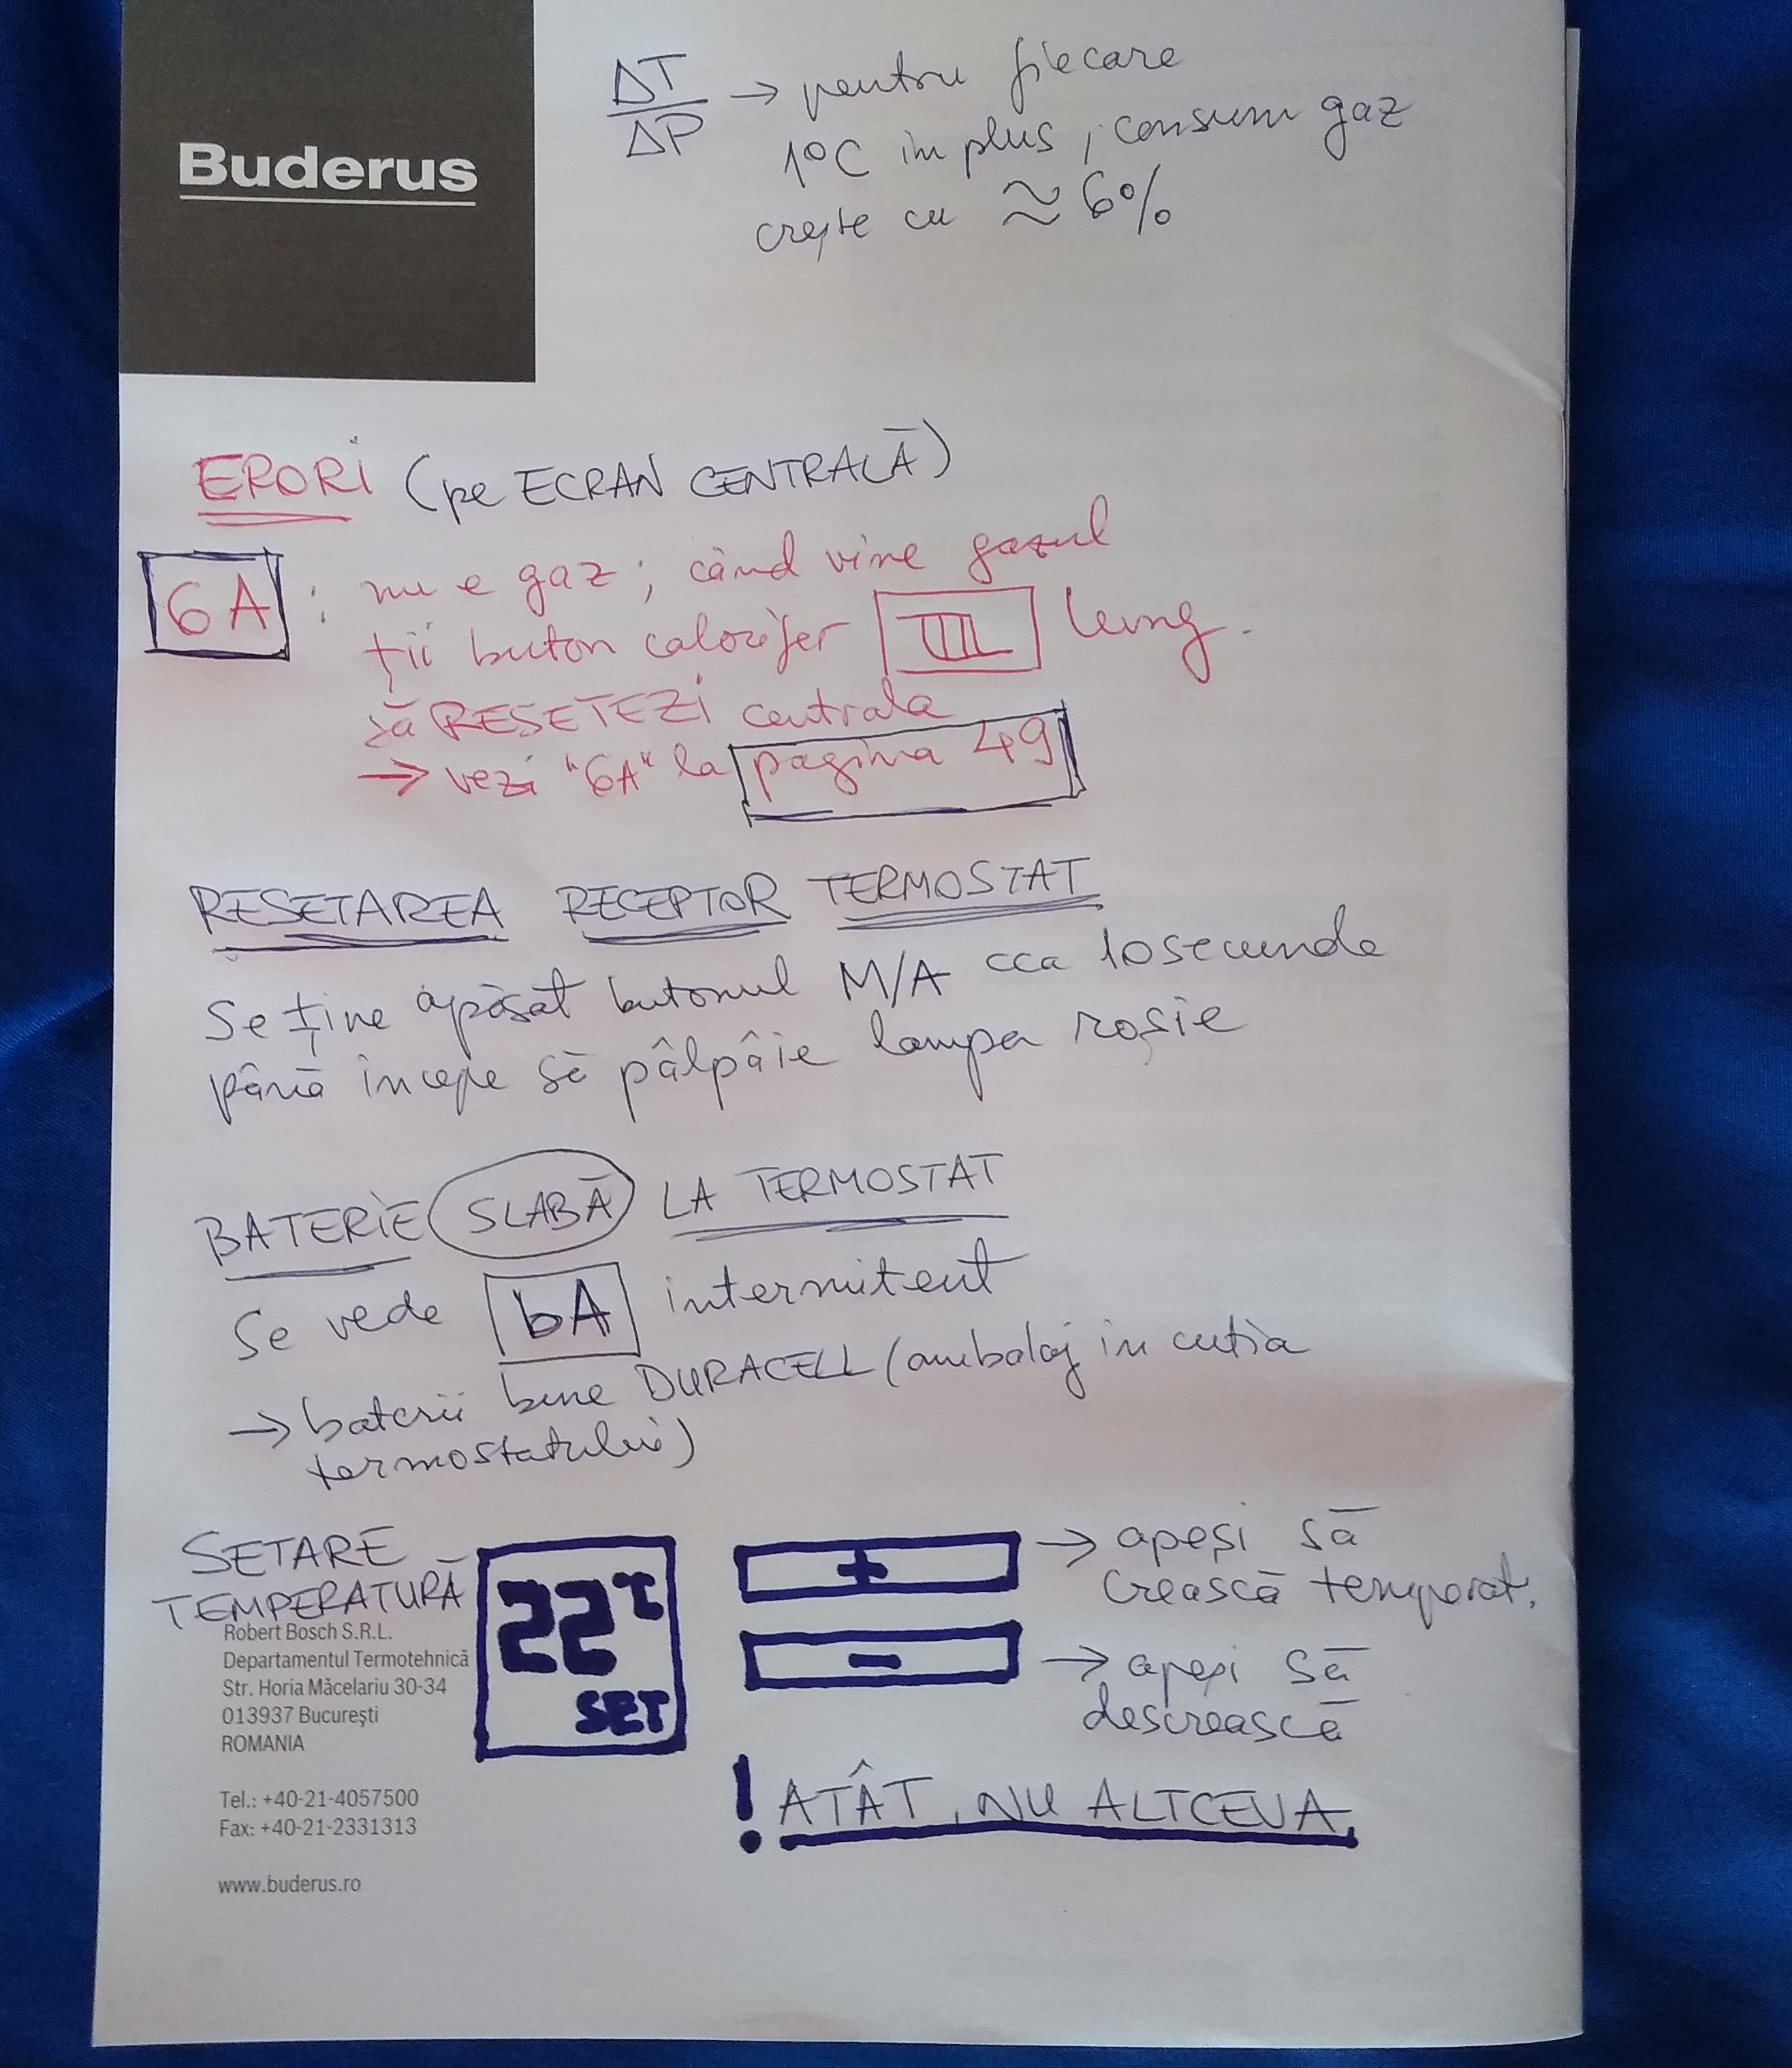 Buderus
ΔT/ΔP → pentru fiecare
1°C în plus, consum gaz
crește cu ≈ 6%
ERORI (pe ECRAN CENTRALĂ)
6A : nu e gaz; când vine gazul
ții buton calorifer lung.
să RESETEZI centrala
→ vezi "6A" la pagina 49
RESETAREA RECEPTOR TERMOSTAT
Se ține apăsat butonul M/A cca 10 secunde
până începe să pâlpâie lampa roșie
BATERIE SLABĂ LA TERMOSTAT
Se vede bA intermitent
→ baterii bune DURACELL (ambalaj in cutia
termostatului)
SETARE
TEMPERATURĂ
22°C
SET
+ → apeși să
crească temperat.
- → apeși să
descrească
! ATÂT, NU ALTCEVA.
Robert Bosch S.R.L.
Departamentul Termotehnică
Str. Horia Măcelariu 30-34
013937 București
ROMANIA
Tel.: +40-21-4057500
Fax: +40-21-2331313
www.buderus.ro